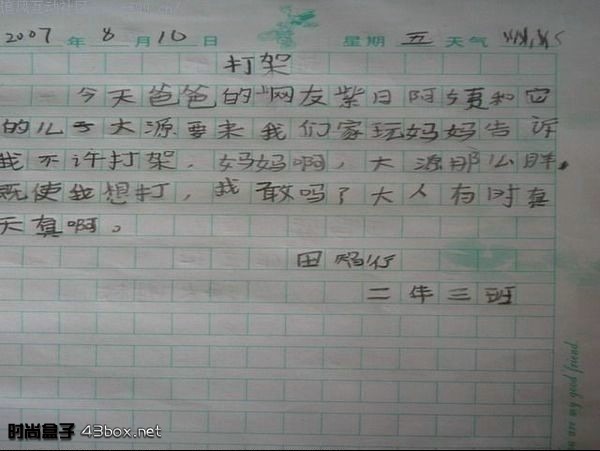 2007 年 8 月 10 日 星期 五 天气
打架
今天爸爸的"网友紫日阿姨和它
的儿子大源要来我们家玩妈妈告诉
我不许打架，妈妈啊，大源那么胖，
既使我想打，我敢吗？大人有时真
天真啊。
田
二年三班
you are my good friend
时尚盒子 43box.net